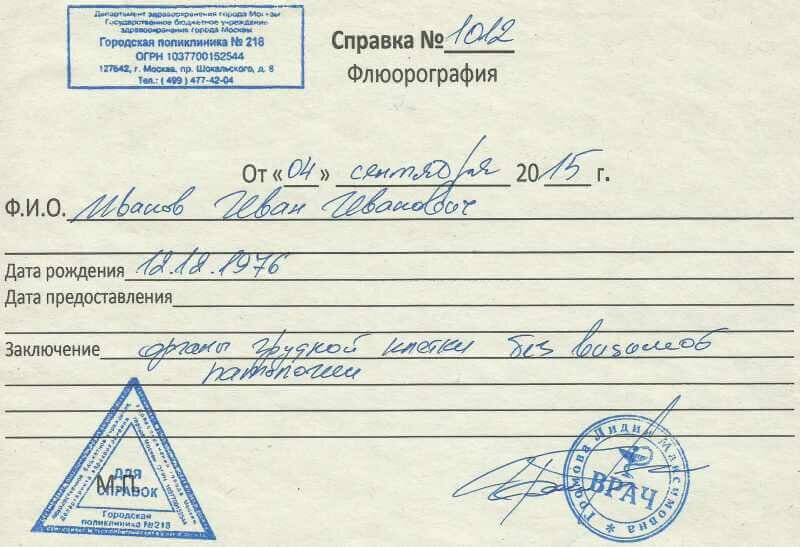 Департамент здравоохранения города Москвы
Государственное бюджетное учреждение
здравоохранения города Москвы
Городская поликлиника № 218
ОГРН 1037700152544
127642, г. Москва, пр. Шокальского, д. 8
Тел.: ( 499 ) 477-42-04
Справка № 1012
Флюорография
От «04» сентября 2015 г.
Ф.И.О. Иванов Иван Иванович
Дата рождения 12.12.1976
Дата предоставления
Заключение органы грудной клетки без
патологии
М.П.
ДЛЯ
СПРАВОК
Городская
поликлиника №218
Громова Лидия Максимовна
ВРАЧ